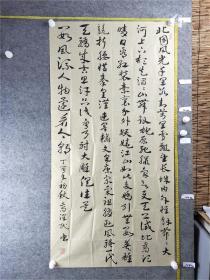 北国风光千里冰封万里雪飘望长城内外惟余莽莽大
河上下顿失滔滔山舞银蛇原驰蜡象欲与天公试比高须
晴日看红装素裹分外妖娆江山如此多娇引无数英雄
竞折腰惜秦皇汉武略输文采唐宗宋祖稍逊风骚一代
天骄成吉思汗只识弯弓射大雕俱往矣
数风流人物还看今朝 丁酉年初秋 书